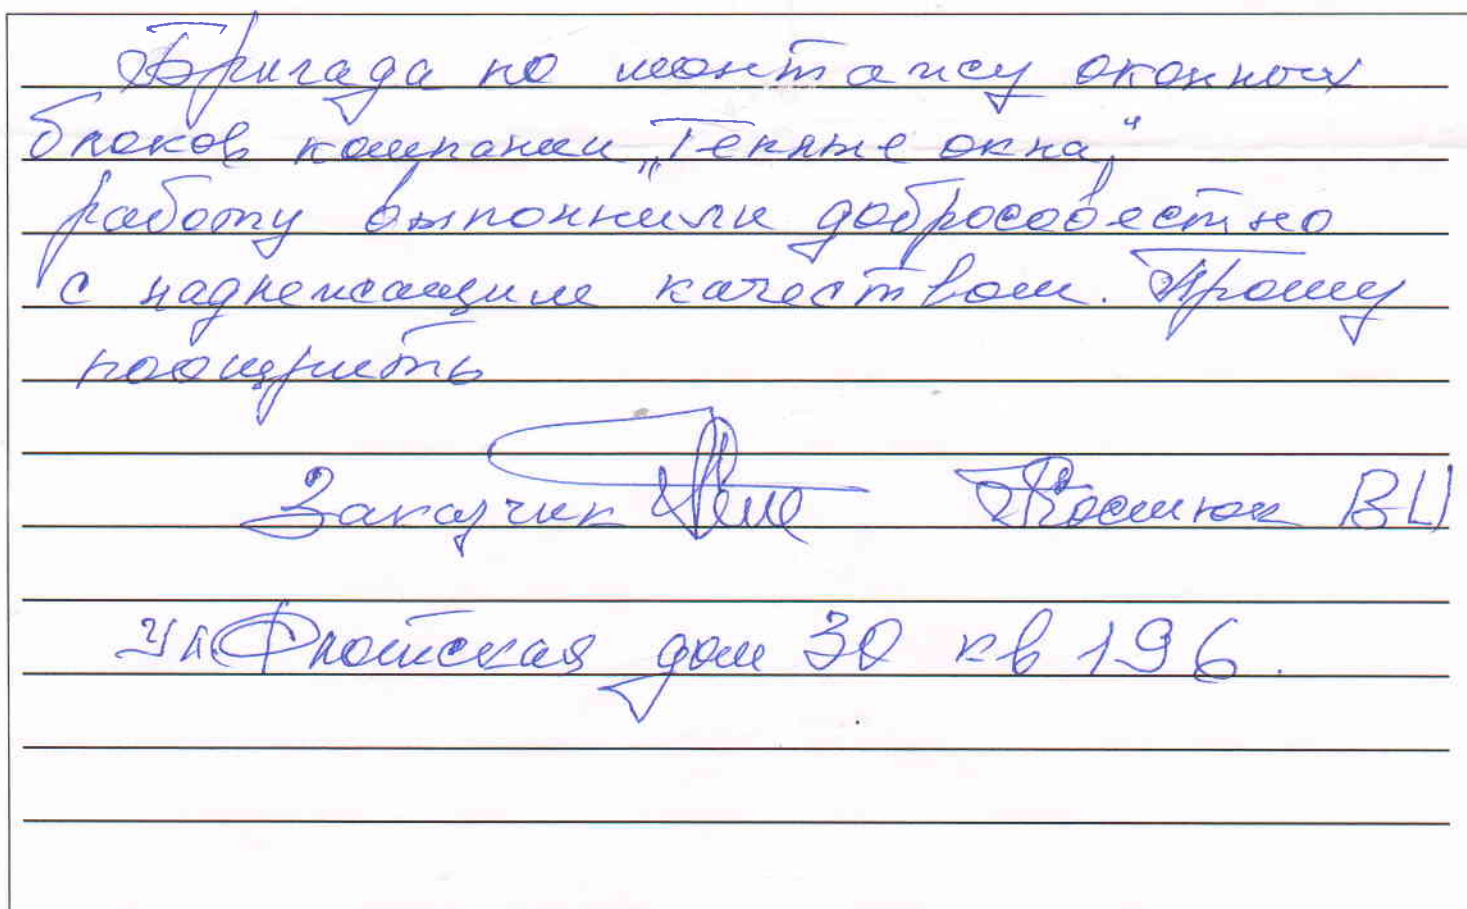 Бригада по монтажу оконных
блоков компании „Теплые окна"
работу выполнили добросовестно
с надлежащим качеством. Прошу
поощрить
Заказчик
ул. Флотская дом 30 кв 196.